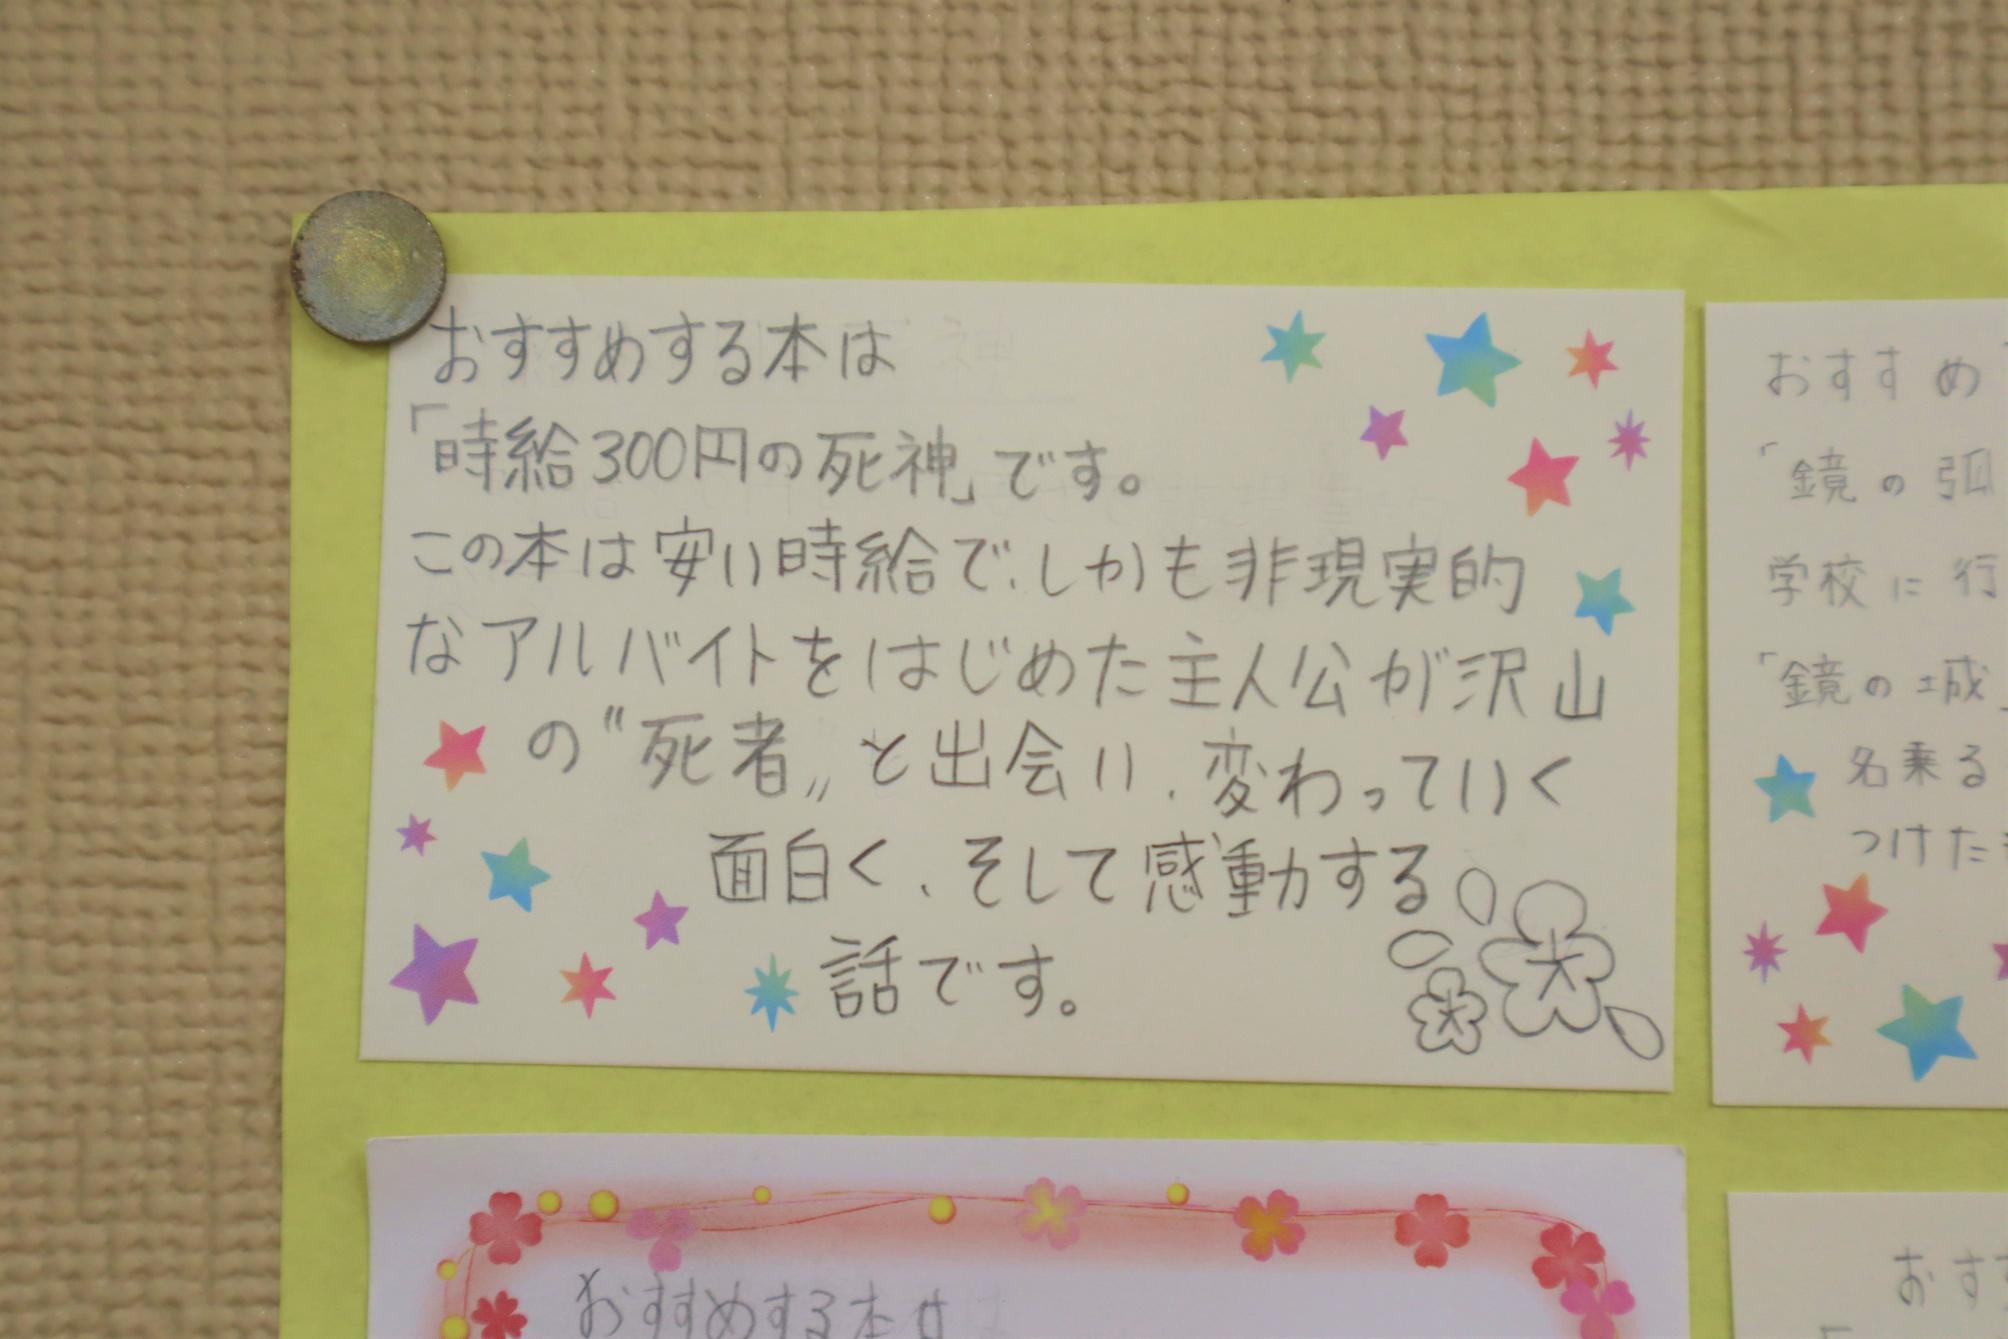 おすすめする本は
「時給300円の死神」です。
この本は安い時給で、しかも非現実的
なアルバイトをはじめた主人公が沢山
の〝死者〟と出会い、変わっていく
面白く、そして感動する
話です。
おすすめ
「鏡の弧
学校に行
「鏡の城」
名乗る
つけた
おすすめする本は
おす